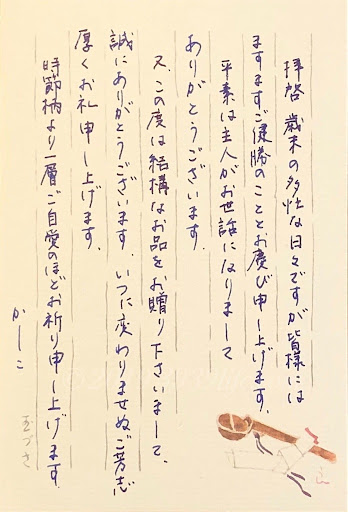 拝啓 歳末の多忙な日々ですが皆様には
ますますご健勝のこととお慶び申し上げます。
平素は主人がお世話になりまして
ありがとうございます。
又、この度は結構なお品をお贈り下さいまして、
誠にありがとうございます。いつに変わりませぬご芳志
厚くお礼申し上げます。
時節柄より一層ご自愛のほどお祈り申し上げます。
かしこ
玉づさ